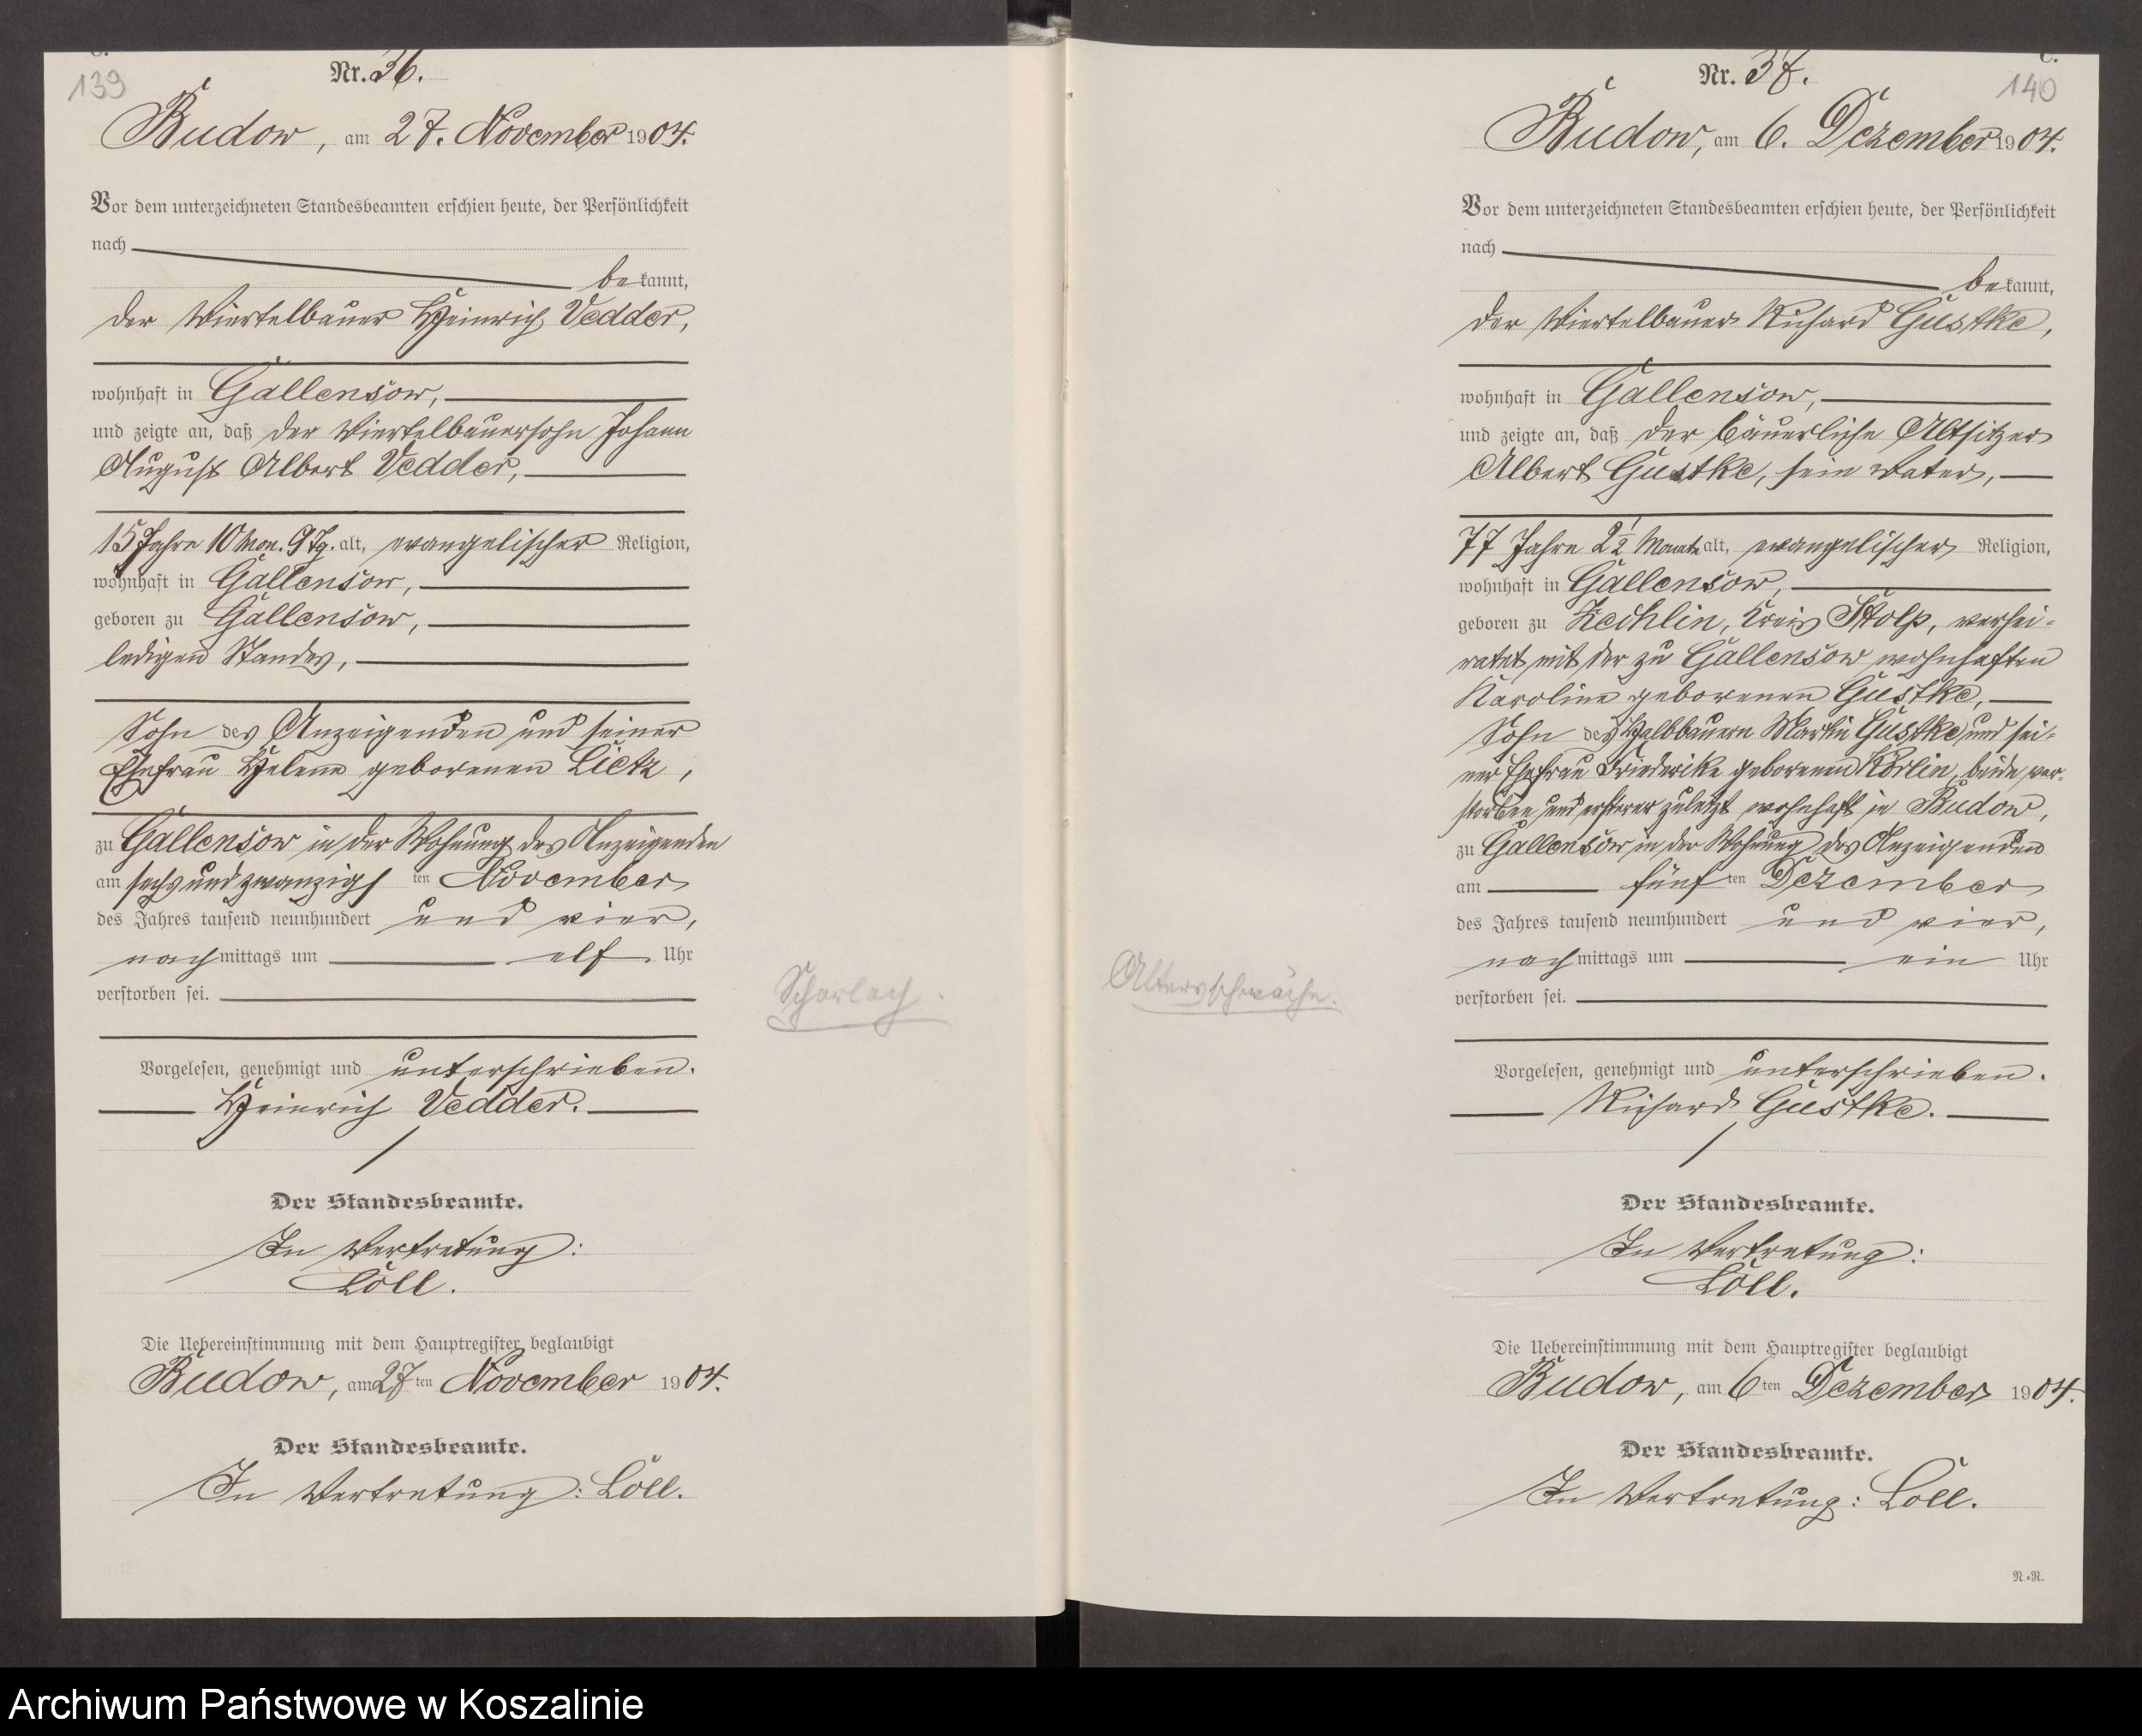 C.
139
Nr. 36.
Budow, am 27. November 1904.
Vor dem unterzeichneten Standesbeamten erschien heute, der Persönlichkeit
nach
bekannt,
der Viertelbauer Heinrich Vedder,
wohnhaft in Gallensow,
und zeigte an, daß der Viertelbauersohn Johann
August Albert Vedder,
15 Jahre 10 Mon. 9 Tg. alt, evangelischer Religion,
wohnhaft in Gallensow,
geboren zu Gallensow,
ledigen Standes,
Sohn des Anzeigenden und seiner
Ehefrau Helene geborenen Lietz,
zu Gallensow in der Wohnung des Anzeigenden
am sechsundzwanzigsten November
des Jahres tausend neunhundert und vier,
nachmittags um elf Uhr
verstorben sei.
Scharlach.
Vorgelesen, genehmigt und unterschrieben.
Heinrich Vedder.
Der Standesbeamte.
In Vertretung:
Löll.
Die Uebereinstimmung mit dem Hauptregister beglaubigt
Budow, am 27ten November 1904.
Der Standesbeamte.
In Vertretung: Löll.
C.
140
Nr. 37.
Budow, am 6. Dezember 1904.
Vor dem unterzeichneten Standesbeamten erschien heute, der Persönlichkeit
nach
bekannt,
der Viertelbauer Richard Gustke,
wohnhaft in Gallensow,
und zeigte an, daß der bäuerliche Altsitzer
Albert Gustke, sein Vater,
77 Jahre 2½ Monate alt, evangelischer Religion,
wohnhaft in Gallensow,
geboren zu Zechlin, Kreis Stolp, verhei-
ratet mit der zu Gallensow wohnhaften
Karoline geborenen Gustke,
Sohn des Halbbauern Martin Gustke und sei-
ner Ehefrau Friederike geborenen Körlin, beide ver-
storben und ersterer zuletzt wohnhaft in Budow,
zu Gallensow in der Wohnung des Anzeigenden
am fünften Dezember
des Jahres tausend neunhundert und vier,
nachmittags um ein Uhr
verstorben sei.
Altersschwäche.
Vorgelesen, genehmigt und unterschrieben.
Richard Gustke.
Der Standesbeamte.
In Vertretung:
Löll.
Die Uebereinstimmung mit dem Hauptregister beglaubigt
Budow, am 6ten Dezember 1904.
Der Standesbeamte.
In Vertretung: Löll.
N.=R.
Archiwum Państwowe w Koszalinie